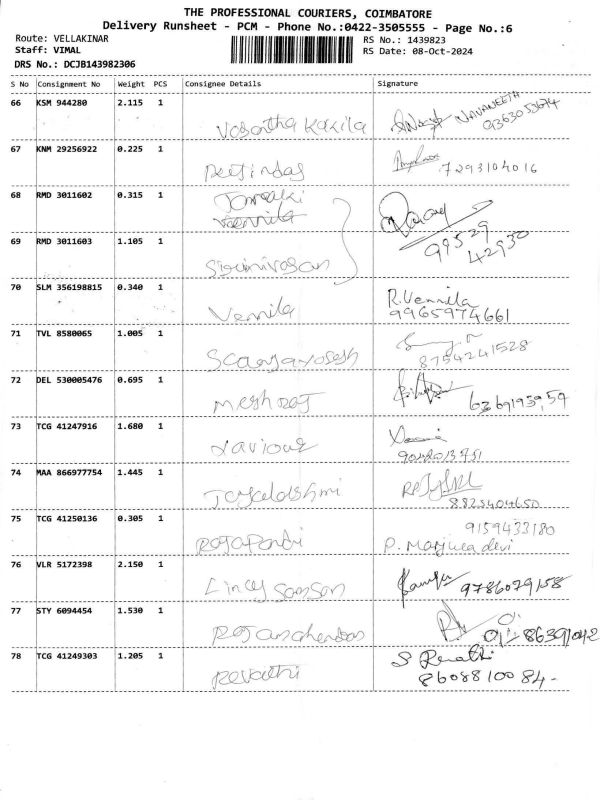 THE PROFESSIONAL COURIERS, COIMBATORE
Delivery Runsheet - PCM - Phone No.:0422-3505555 - Page No.:6
Route: VELLAKINAR
RS No.: 1439823
Staff: VIMAL
RS Date: 08-Oct-2024
DRS No.: DCJB143982306
S No Consignment No Weight PCS Consignee Details Signature
66 KSM 944280 2.115 1
Vasantha Kakila NAVANEETA
67 KNM 29256922 0.225 1
7293104016
68 RMD 3011602 0.315 1
Vennila
99529
42930
69 RMD 3011603 1.105 1
70 SLM 356198815 0.340 1
Vennila R.Vennila
9965974661
71 TVL 8580065 1.005 1
8754241528
72 DEL 530005476 0.695 1
Meghraj
73 TCG 41247916 1.680 1
74 MAA 866977754 1.445 1
8825404650
75 TCG 41250136 0.305 1
9159433180
RajaPandi P. Manjula devi
76 VLR 5172398 2.150 1
Lincy Samson 9786079158
77 STY 6094454 1.530 1
86391042
78 TCG 41249303 1.205 1
Revathi S Revathi
8608810084-